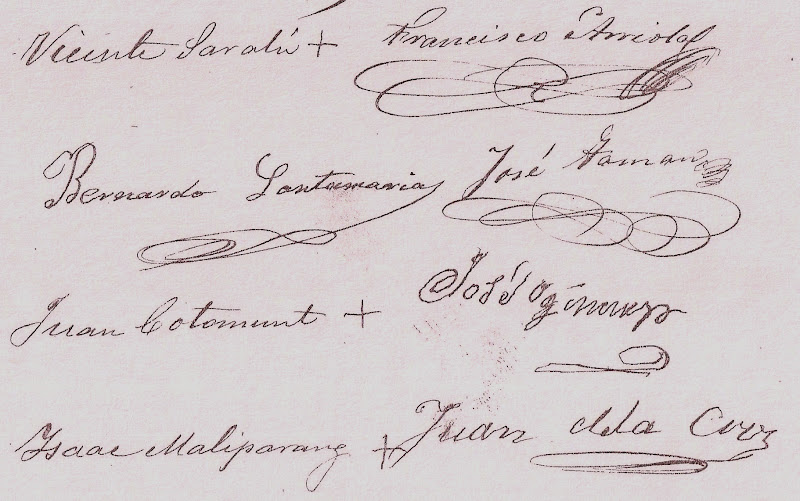 Vicente Saralú + Francisco Arriola
Bernardo Santamaria José Roman
Juan Cotomunt + José Gimenez
Isaac Maliparang + Juan dela Cruz